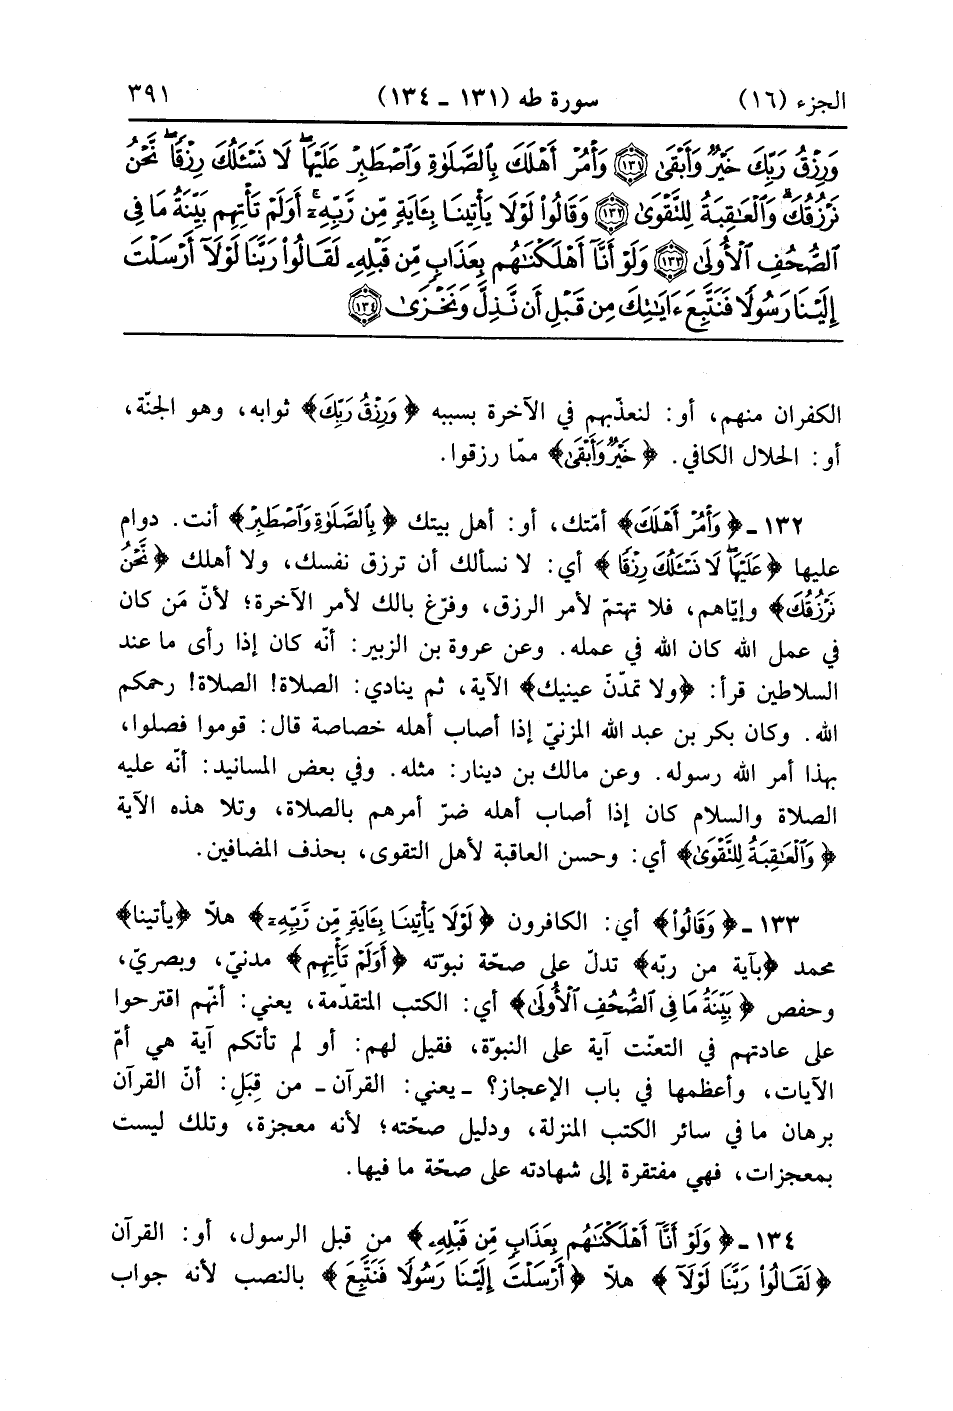 الجزء (١٦) سورة طه (١٣١ ـ ١٣٤) ٣٩١
وَرِزْقُ رَبِّكَ خَيْرٌ وَأَبْقَىٰ ﴿١٣١﴾ وَأْمُرْ أَهْلَكَ بِٱلصَّلَوٰةِ وَٱصْطَبِرْ عَلَيْهَاۖ لَا نَسْـَٔلُكَ رِزْقًاۖ نَّحْنُ
نَرْزُقُكَۗ وَٱلْعَـٰقِبَةُ لِلتَّقْوَىٰ ﴿١٣٢﴾ وَقَالُوا۟ لَوْلَا يَأْتِينَا بِـَٔايَةٍ مِّن رَّبِّهِۦٓۚ أَوَلَمْ تَأْتِهِم بَيِّنَةُ مَا فِى
ٱلصُّحُفِ ٱلْأُولَىٰ ﴿١٣٣﴾ وَلَوْ أَنَّآ أَهْلَكْنَـٰهُم بِعَذَابٍ مِّن قَبْلِهِۦ لَقَالُوا۟ رَبَّنَا لَوْلَآ أَرْسَلْتَ
إِلَيْنَا رَسُولًا فَنَتَّبِعَ ءَايَـٰتِكَ مِن قَبْلِ أَن نَّذِلَّ وَنَخْزَىٰ ﴿١٣٤﴾
الكفران منهم، أو: لنعذّبهم في الآخرة بسببه ﴿وَرِزْقُ رَبِّكَ﴾ ثوابه، وهو الجنّة،
أو: الحلال الكافي. ﴿خَيْرٌ وَأَبْقَىٰ﴾ ممّا رزقوا.
١٣٢ ـ ﴿وَأْمُرْ أَهْلَكَ﴾ أمّتك، أو: أهل بيتك ﴿بِٱلصَّلَوٰةِ وَٱصْطَبِرْ﴾ أنت. دوام
عليها ﴿عَلَيْهَاۖ لَا نَسْـَٔلُكَ رِزْقًا﴾ أي: لا نسألك أن ترزق نفسك، ولا أهلك ﴿نَّحْنُ
نَرْزُقُكَ﴾ وإيّاهم، فلا تهتمّ لأمر الرزق، وفرّغ بالك لأمر الآخرة؛ لأنّ مَن كان
في عمل الله كان الله في عمله. وعن عروة بن الزبير: أنّه كان إذا رأى ما عند
السلاطين قرأ: ﴿ولا تمدّنّ عينيك﴾ الآية، ثم ينادي: الصلاة! الصلاة! رحمكم
الله. وكان بكر بن عبد الله المزنيّ إذا أصاب أهله خصاصة قال: قوموا فصلوا،
بهذا أمر الله رسوله. وعن مالك بن دينار: مثله. وفي بعض المسانيد: أنّه عليه
الصلاة والسلام كان إذا أصاب أهله ضرّ أمرهم بالصلاة، وتلا هذه الآية
﴿وَٱلْعَـٰقِبَةُ لِلتَّقْوَىٰ﴾ أي: وحسن العاقبة لأهل التقوى، بحذف المضافين.
١٣٣ ـ ﴿وَقَالُوا۟﴾ أي: الكافرون ﴿لَوْلَا يَأْتِينَا بِـَٔايَةٍ مِّن رَّبِّهِۦٓ﴾ هلاّ ﴿يأتينا﴾
محمد ﴿بآية من ربّه﴾ تدلّ على صحّة نبوّته ﴿أَوَلَمْ تَأْتِهِم﴾ مدنيّ، وبصريّ،
وحفص ﴿بَيِّنَةُ مَا فِى ٱلصُّحُفِ ٱلْأُولَىٰ﴾ أي: الكتب المتقدّمة، يعني: أنّهم اقترحوا
على عادتهم في التعنّت آية على النبوّة، فقيل لهم: أو لم تأتكم آية هي أمّ
الآيات، وأعظمها في باب الإعجاز؟ ـ يعني: القرآن ـ من قِبَلِ: أنّ القرآن
برهان ما في سائر الكتب المنزلة، ودليل صحّته؛ لأنه معجزة، وتلك ليست
بمعجزات، فهي مفتقرة إلى شهادته على صحّة ما فيها.
١٣٤ ـ ﴿وَلَوْ أَنَّآ أَهْلَكْنَـٰهُم بِعَذَابٍ مِّن قَبْلِهِۦ﴾ من قبل الرسول، أو: القرآن
﴿لَقَالُوا۟ رَبَّنَا لَوْلَآ﴾ هلاّ ﴿أَرْسَلْتَ إِلَيْنَا رَسُولًا فَنَتَّبِعَ﴾ بالنصب لأنه جواب